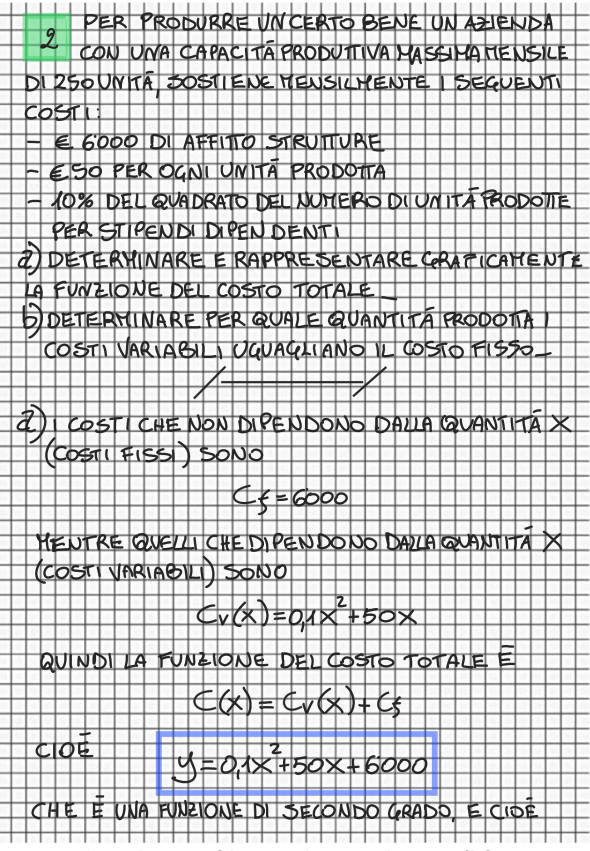 2 PER PRODURRE UN CERTO BENE UN AZIENDA
CON UNA CAPACITÀ PRODUTTIVA MASSIMA MENSILE
DI 250 UNITÀ, SOSTIENE MENSILMENTE I SEGUENTI
COSTI:
- € 6000 DI AFFITTO STRUTTURE
- € 50 PER OGNI UNITÀ PRODOTTA
- 10% DEL QUADRATO DEL NUMERO DI UNITÀ PRODOTTE
PER STIPENDI DIPENDENTI
a) DETERMINARE E RAPPRESENTARE GRAFICAMENTE
LA FUNZIONE DEL COSTO TOTALE_
b) DETERMINARE PER QUALE QUANTITÀ PRODOTTA I
COSTI VARIABILI UGUAGLIANO IL COSTO FISSO_
a) I COSTI CHE NON DIPENDONO DALLA QUANTITÀ X
(COSTI FISSI) SONO
Cf = 6000
MENTRE QUELLI CHE DIPENDONO DALLA QUANTITÀ X
(COSTI VARIABILI) SONO
Cv(x) = 0,1x² + 50x
QUINDI LA FUNZIONE DEL COSTO TOTALE È
C(x) = Cv(x) + Cf
CIOÈ
y = 0,1x² + 50x + 6000
CHE È UNA FUNZIONE DI SECONDO GRADO, E CIOÈ